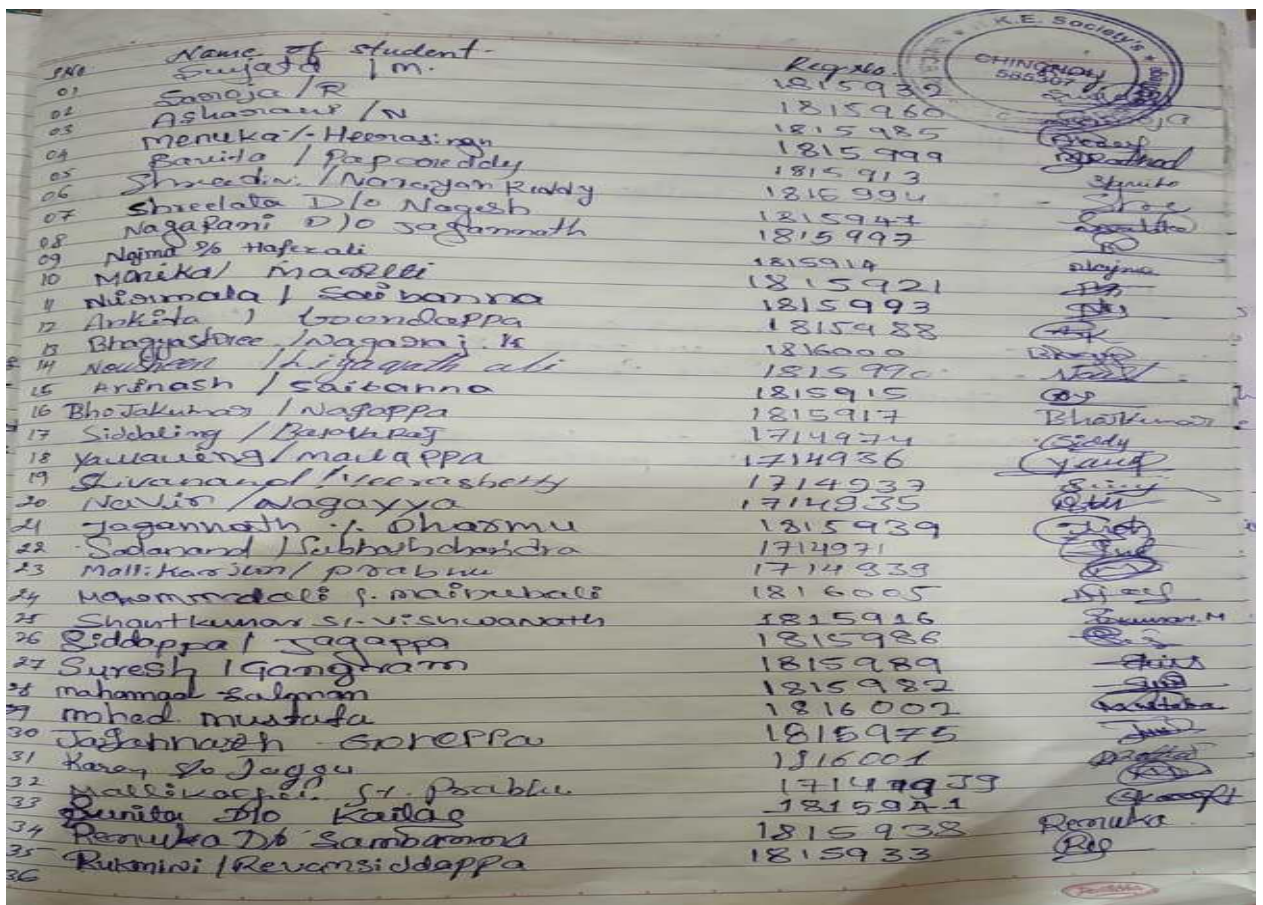 K.E. Society's
CHINCHOLI
585307
SNo. Name of student. Reg.No.
01 Sujata / M. 1815932
02 Saroja / R 1815960
03 Asharani / N 1815985
04 Menuka /. Heerasingh 1815999
05 Banita / Papareddy 1815913
06 / Narayan Reddy 1815994
07 Shreelata D/o Nagesh 1815947
08 NagaRani D/o Jagannath 1815997
09 Najma D/o Hafezali 1815914 Najma
10 Monika / 1815921
11 Nirmala / Saibanna 1815993
12 Ankita / Goondappa 1815988
13 Bhagyashree / Nagaraj. K 1816000
14 Nousheen / Liyaqath ali 181599
15 Avinash / Saibanna 1815915
16 BhoJakumar / Nagappa 1815917
17 Siddaling / 1714974 Siddy
18 / mailappa 1714936
19 Shivanand / Veerashetty 1714937
20 Navin / Nagayya 1714935
21 Jagannath /. Dharmu 1815939
22 Sadanand / Subhashchandra 1714971
23 Mallikarjun / prabhu 1714939
24 1816005
25 Shantkumar S/. Vishwanath 1815916
26 Siddappa / Jagappa 1815986
27 Suresh / Gangaram 1815989
28 mahamad Salman 1815982
29 mohed mustafa 1816002
30 Jagannath Goreppa 1815975
31 Karan S/o Jaggu 1816001
32 S/. Prabhu
33 Sunita D/o Kailas 1815941
34 Renuka D/o 1815938 Renuka
35 Rukmini / Revansiddappa 1815933
36